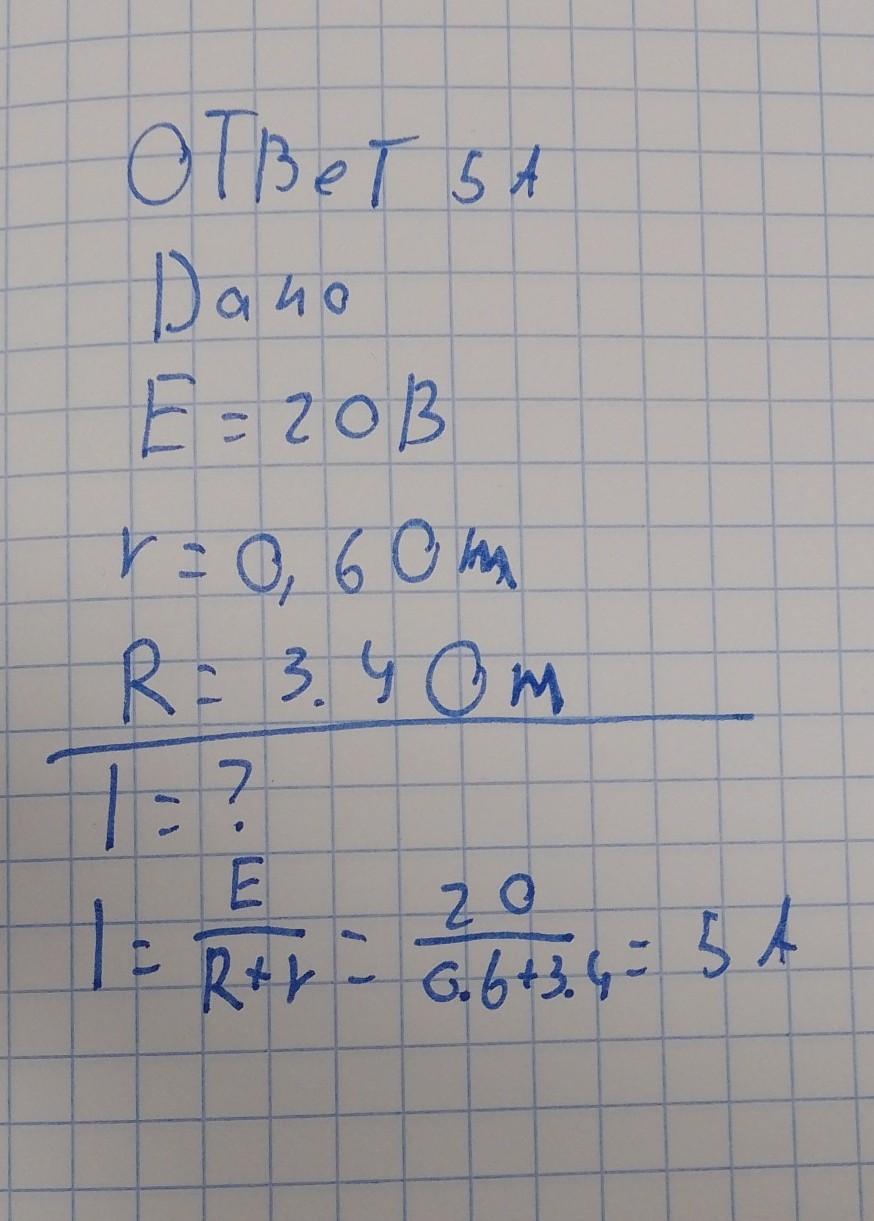 Ответ 5 А
Дано
E = 20В
r = 0,6 Ом
R = 3.4 Ом
I = ?
I = E/(R+r) = 20/(0.6+3.4) = 5 А